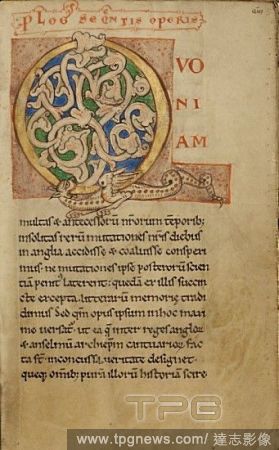 PLOGꝰ SEQENTIS OPERIS
QVO
NI
AM
multas & antecessorū nr̄orum tēporib;
insolitas rerū mutationes nr̄is diebus
in anglia accidisse & coaluisse conspexi
mus. ne mutationes ipse posterorū scien
tiā penit' laterent: quedā ex illis succin
cte excepta. literarū memorie tradi
dimus. Sed qm̄ opus ipsum in hoc maxi
me versat̄. ut ea q̨ inter reges anglorꝝ
& anselmū archiep̄m cantuariorꝝ fac
ta st̄ inconcussa veritate designet.
queq; omib; pura illorū historiā scire
TPG
www.tpgnews.com / 達志影像